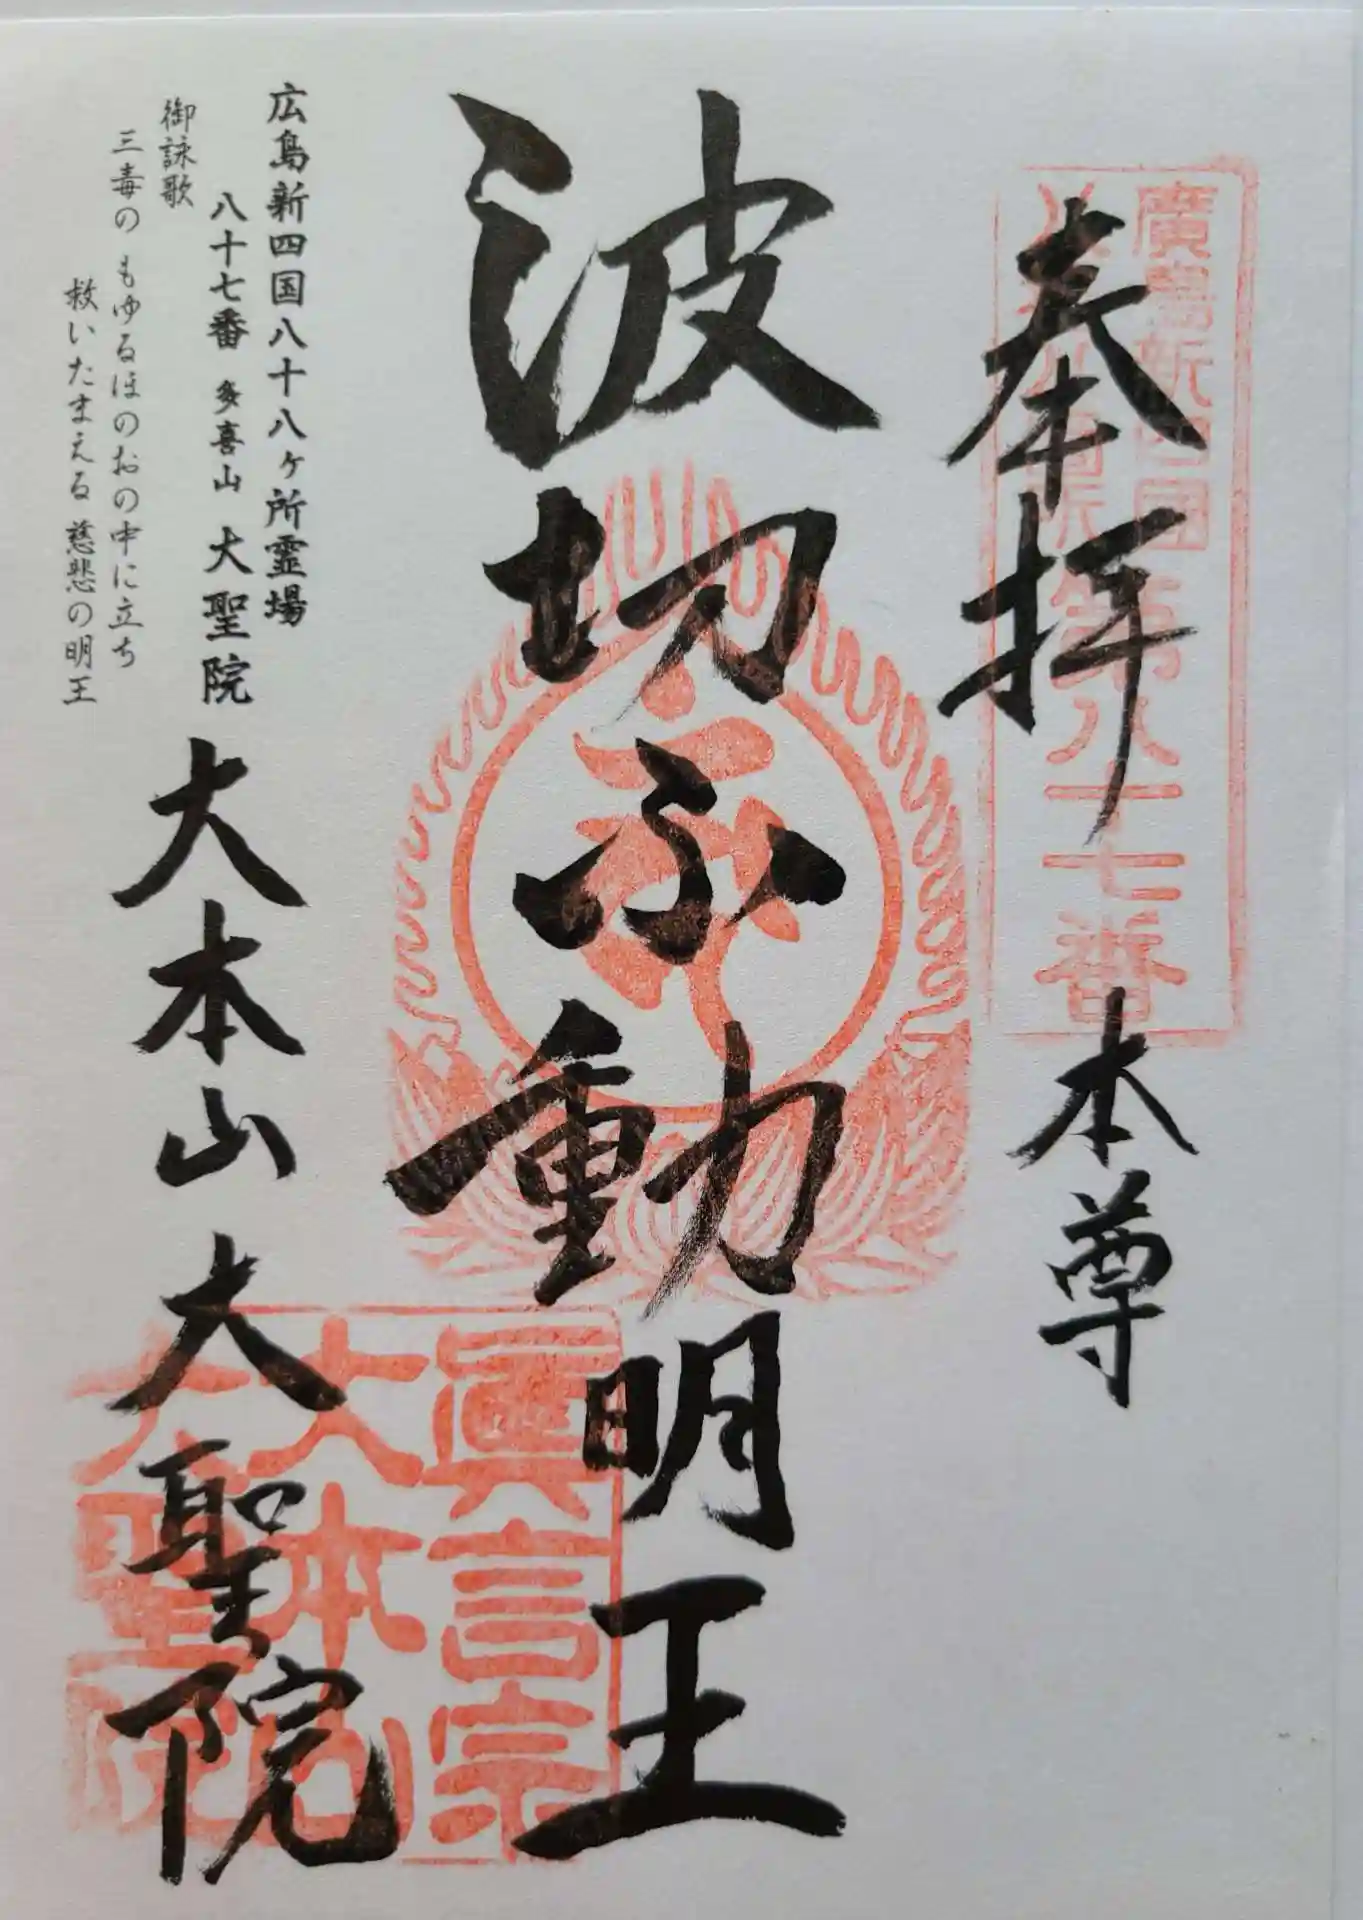 奉拝
本尊
廣島新四國
第八十七番
波切ふ動明王
大本山大聖院
眞言宗
大本山
大聖院
広島新四国八十八ヶ所霊場
八十七番 多喜山 大聖院
御詠歌
三毒の もゆるほのおの中に立ち
救いたまえる 慈悲の明王